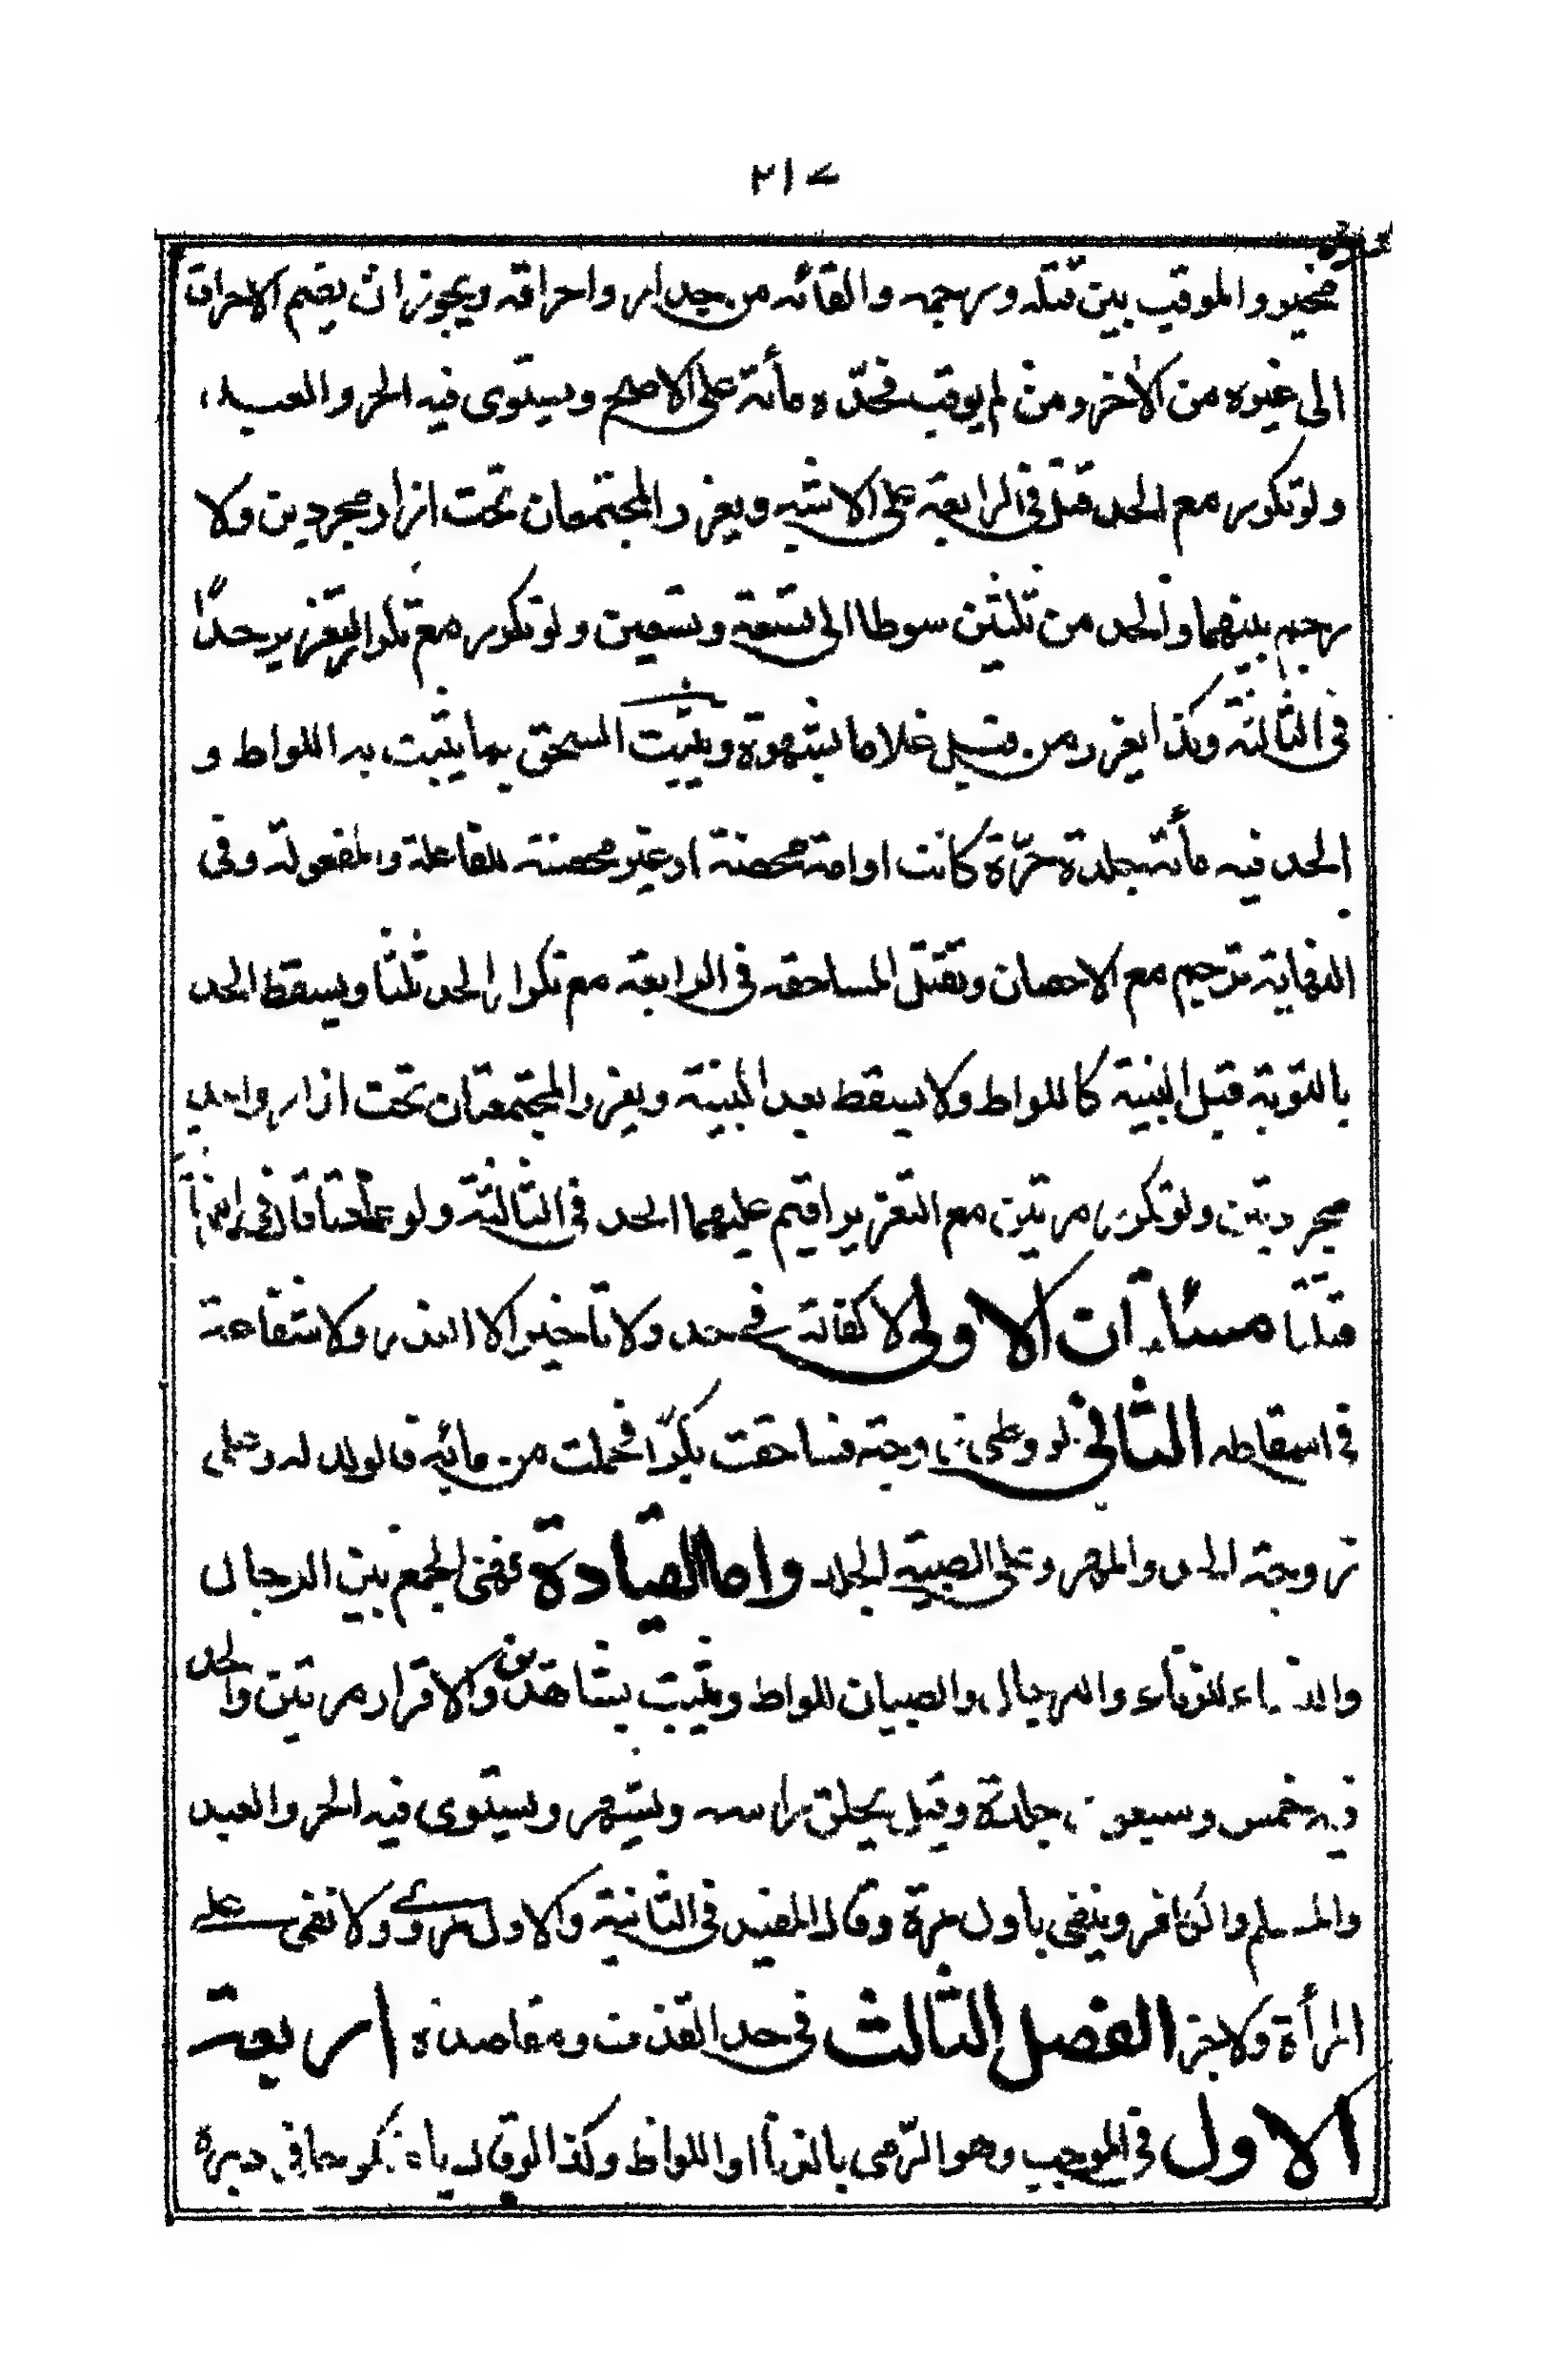 ٢١٧
مخير والموقب بين قتله ورجمه والقائه من جدار واحراقه ويجوز ان يضم الاحراق
الى غيره من الاخر ومن لم يوقب فحدّه مأئة على الاصح ويستوى فيه الحر والعبد
ولو تكرر مع الحد قتل فى الرابعة على الاشبه ويعزر المجتمعان تحت ازار مجردين ولا
رحم بينهما والحد من ثلثين سوطا الى تسعة وتسعين ولو تكرر مع تكرار التعزير حدّا
فى الثالثة وكذا يعزر من قبل غلاما بشهوة ويثبت السحق بما يثبت به اللواط و
الحد فيه مأئة جلدة حرّة كانت او امة محصنة او غير محصنة للفاعلة والمفعولة وفى
النهاية ترجم مع الاحصان وتقتل المساحقه فى الرابعة مع تكرار الحد ثلثا ويسقط الحد
بالتوبة قبل البينة كاللواط ولا يسقط بعد البينة ويعزر المجتمعتان تحت ازار واحد
مجردتين ولو تكرر مرتين مع التعزير اقيم عليهما الحد فى الثالثة ولو عادتا قال فى
قتلتا مسئلتان الاولى لا كفالة فى حد ولا تاخير الا العذر ولا شفاعة
فى اسقاطه الثانى لو وطى زوجته فساحقت بكرّا فحملت من مائه فالولد له وعلى
زوجته الحد والمهر وعلى الصبية الجلد واما القيادة فهى الجمع بين الرجال
والنساء للزناء والرجال والصبيان للواط ويثبت بشاهدين والاقرار مرتين والحد
فيه خمس وسبعون جلدة وقيل يحلق راسه ويشهر ويستوى فيه الحر والعبد
والمسلم والكافر وينفى باول مرة وقال المفيد فى الثانية والاول مروى ولا نفى على
المرأة ولا جز الفصل الثالث فى حد القذف ومقاصده اربعة
الاول فى الموجب وهو الرّمى بالزنأ او اللواط وكذا لو قال يا منكوحا فى دبره